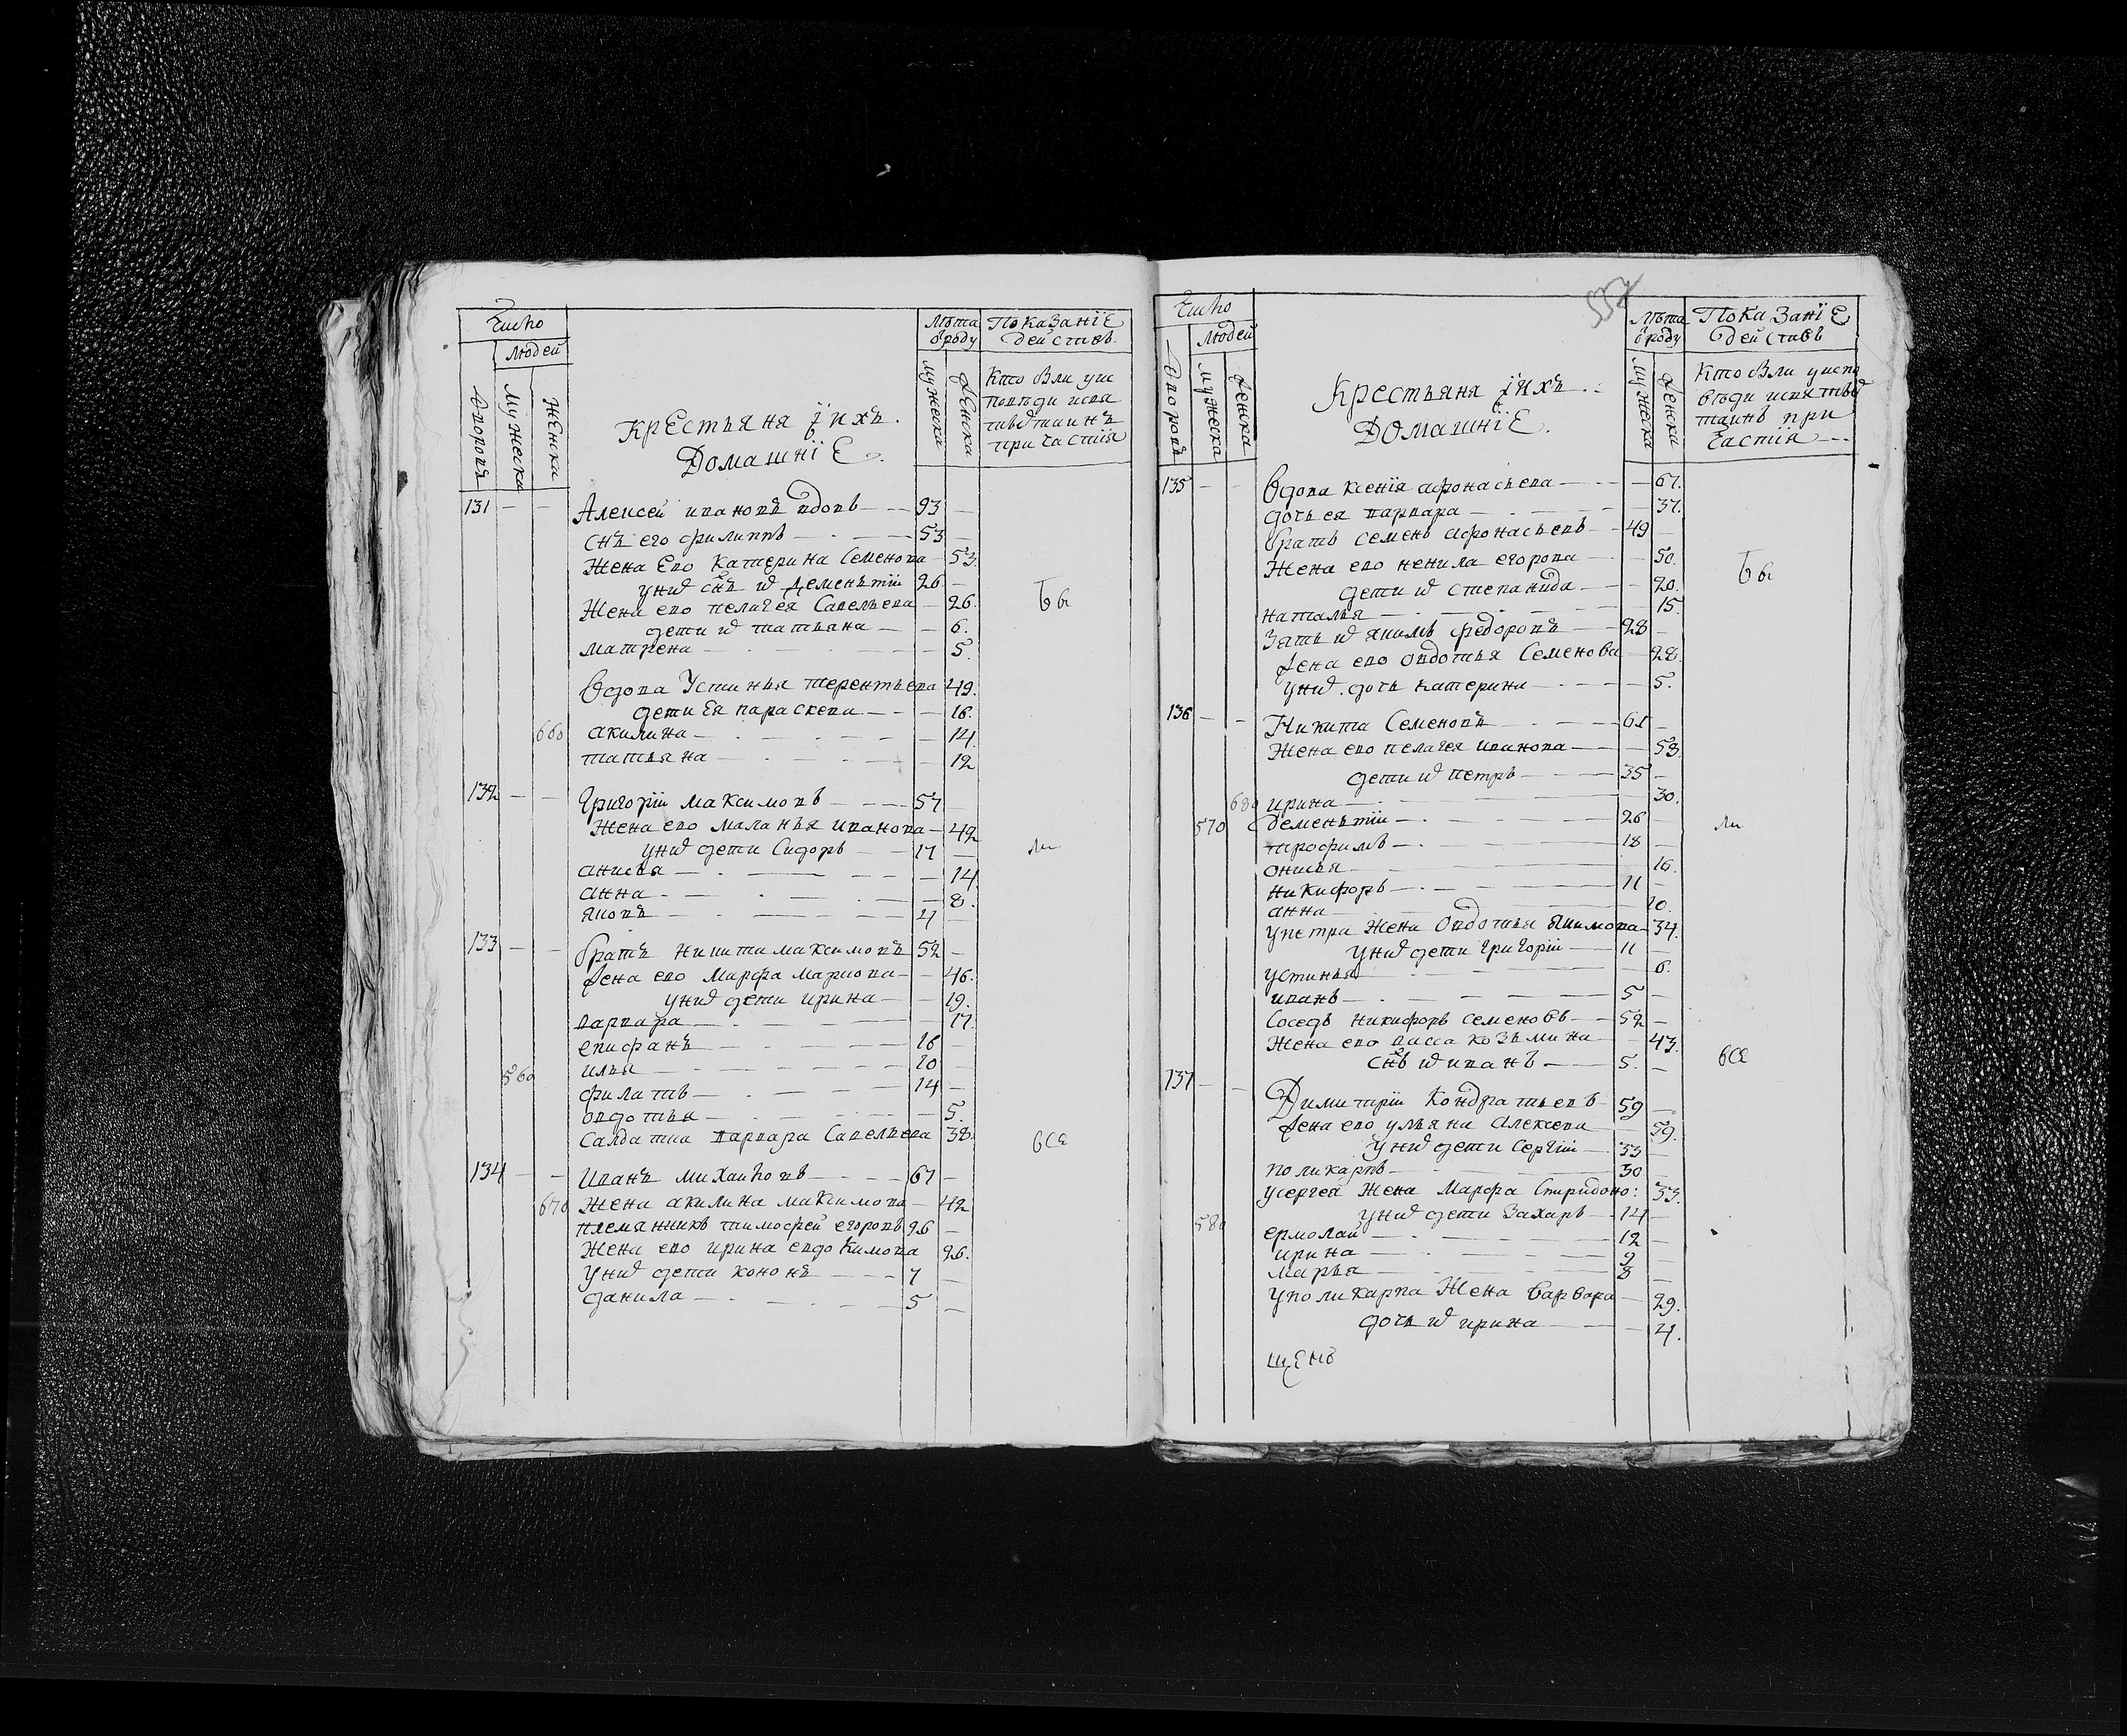 Число
Людей
Дворовъ
Мужеска
Женска
Крестьяня їихъ
Домашнїе
Лѣта
ѿроду
мужеска
женска
Показанїе
дѣйствъ
131 — — Алексей ивановъ вдовъ — 93 —
снъ его филиппъ — 53 —
Жена Ево Катерина Семенова — 53.
униⷯ снъ иⷯ дементїи 26 —
Жена ево пелагея Савельева — 26.
дети иⷯ татьяна — — 6.
матрена — — 5.
Бы
Вдова Устинья терентьева 49.
дети Ея параскева — — 16.
660 акилина — — 14.
татьяна — — 12
132 — — Григорїи максимовъ — 57 —
Жена ево маланья иванова — 42
униⷯ дети Сидоръ — 17 —
ли
анисья — — 14
анна — — 8.
яковъ — 4 —
133 — — братъ никита максимовъ 52 —
Жена ево Марфа маркова — — 46.
униⷯ дети ирина — — 19.
варвара — — 17.
епифанъ — 16 —
560 илья — 10 —
филатъ — 14 —
овдотья — — 5.
Салдатка варвара Савельева 38.
все
134 — — Иванъ михаиловъ — 67 —
670 Жена акилина максимова — 42
племянникъ тимофей егоровъ 26 —
Жена ево ирина евдокимова 26.
униⷯ дети кононъ — 7 —
данила — 5 —
Число
Людей
Дворовъ
мужеска
женска
Крестьяня їихъ
Домашнїе.
Лѣта
ѿроду
мужеска
женска
Показанїе
действъ
135 — — Вдова ксенїя афонасьева — — 67.
дочь ея варвара — — 37.
братъ семенъ афонасьевъ — 49 —
Жена ево ненила егорова — — 50.
дети иⷯ степанида — — 20.
Бы
наталья — — 15.
Зять иⷯ якимъ федоровъ — 28 —
Жена ево овдотья Семенова — 28.
униⷯ дочь катерина — — 5.
136 — — Никита Семеновъ — 61 —
Жена ево пелагея иванова — — 53.
дети иⷯ петръ — 35 —
680 ирина — 30.
570 дементїи — 26 —
ли
трофимъ — 18 —
онисья — 16.
никифоръ — 11 —
анна — 10.
упетра Жена Овдотья Якимова — 34.
униⷯ дети григорїи — 11 —
устинья — — 6.
иванъ — 5 —
Соседъ никифоръ семеновъ — 52 —
Жена ево васса козьмина — 43.
снъ иⷯ иванъ — 5. —
все
137 — — Димитрїи Кондратьевъ — 59 —
Жена ево ульяна Алексева 59.
униⷯ дети Сергїи — 33 —
поликарпъ — 30 —
усергея Жена Марфа Спиридоно: 33.
униⷯ дети Захаръ — 14 —
580 ермолай — 12 —
ирина — 9 —
марья — 8 —
уполикарпа Жена варвара — 29.
дочь иⷯ ирина — — 4.